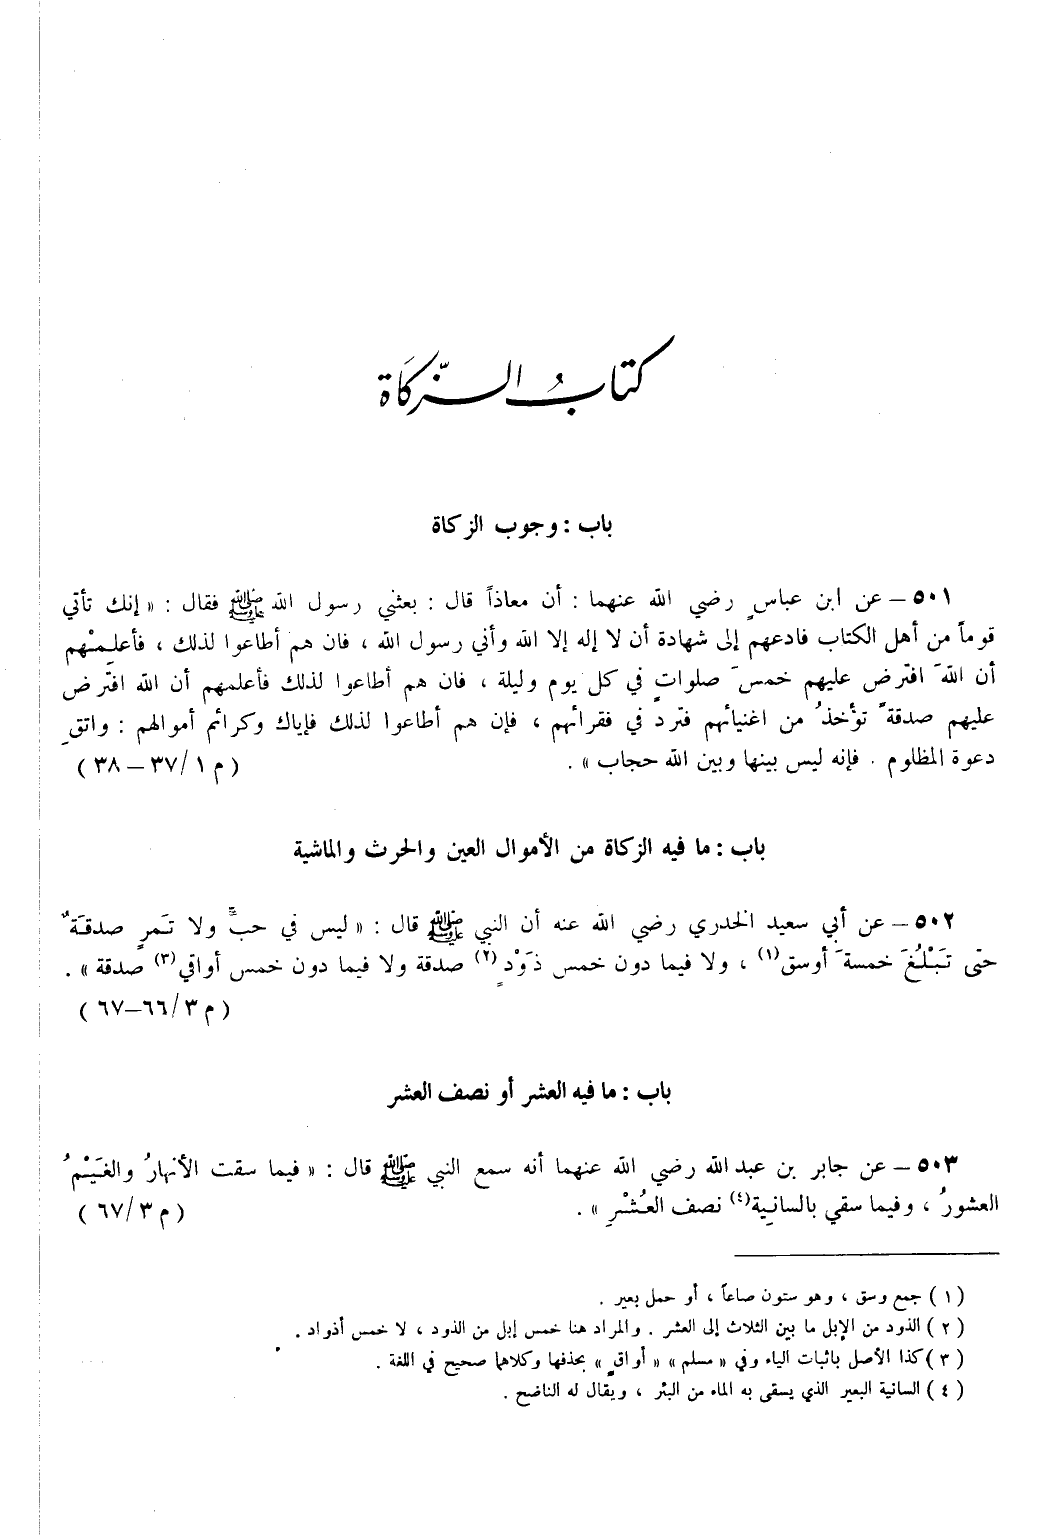 كتابُ الزّكَاة
باب : وجوب الزكاة
٥٠١ – عن ابن عباسٍ رضي الله عنهما : أن معاذاً قال : بعثني رسول الله ﷺ فقال : « إنك تأتي
قوماً من أهل الكتاب فادعهم إلى شهادة أن لا إله إلا الله وأني رسول الله ، فان هم أطاعوا لذلك ، فأعلِمْهم
أن اللهَ افترض عليهم خمسَ صلواتٍ في كل يوم وليلة ، فان هم أطاعوا لذلك فأعلمهم أن الله افترض
عليهم صدقةً تؤخذُ من اغنيائهم فترد في فقرائهم ، فإن هم أطاعوا لذلك فإياك وكرائم أموالهم : واتقِ
دعوة المظلوم . فإنه ليس بينها وبين الله حجاب » . ( م ١/ ٣٧ – ٣٨ )
باب : ما فيه الزكاة من الأموال العين والحرث والماشية
٥٠٢ – عن أبي سعيد الخدري رضي الله عنه أن النبي ﷺ قال : « ليس في حبٍّ ولا تَمرٍ صدقةٌ
حتى تَبْلُغَ خمسةَ أوسق(١) ، ولا فيما دون خمس ذَوْدٍ(٢) صدقة ولا فيما دون خمس أواقي(٣) صدقة » .
( م ٣/ ٦٦–٦٧ )
باب : ما فيه العشر أو نصف العشر
٥٠٣ – عن جابر بن عبد الله رضي الله عنهما أنه سمع النبي ﷺ قال : « فيما سقت الأنهارُ والغَيْمُ
العشورُ ، وفيما سقي بالسانِية(٤) نصف العُشْرِ » . ( م ٣/ ٦٧ )
( ١ ) جمع وسق ، وهو ستون صاعاً ، أو حمل بعير .
( ٢ ) الذود من الإبل ما بين الثلاث إلى العشر . والمراد هنا خمس إبل من الذود ، لا خمس أذواد .
( ٣ ) كذا الأصل باثبات الياء وفي « مسلم » « أواقٍ » بحذفها وكلاهما صحيح في اللغة .
( ٤ ) السانية البعير الذي يسقى به الماء من البئر ، ويقال له الناضح .